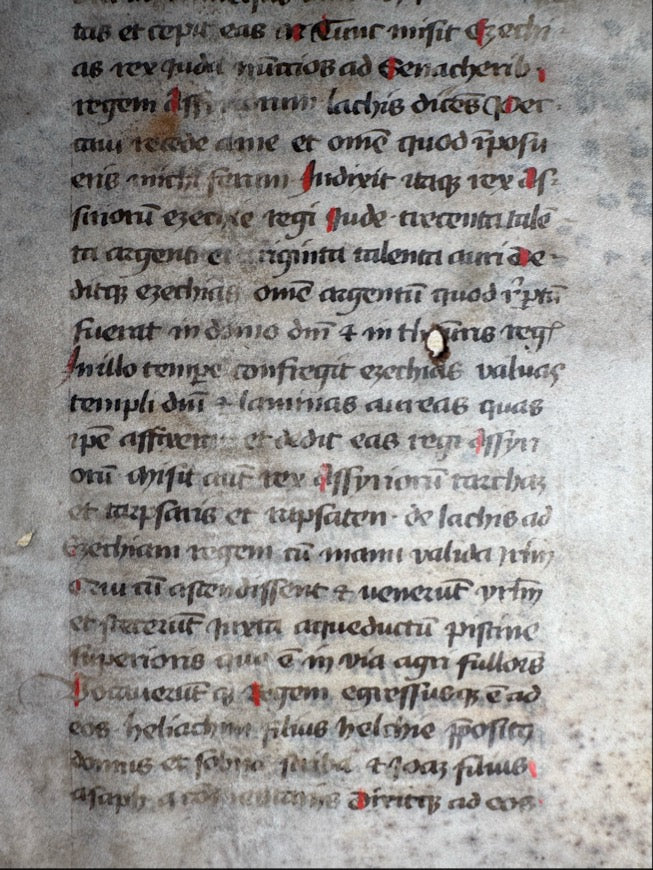 tas et cepit eas Tunc misit Ezechi
as rex iuda nūctios ad Senacherib
regem Assyriorum lachis dicēs Pec
caui recede a me et omē quod īposu
eris michi feram Indixit itaqꝫ rex As
siriorū ezechie regi Iude trecenta talē
ta argenti et triginta talenta auri De
ditqꝫ ezechias omē argentū quod rep̄tū
fuerat in domo dnī ⁊ in thesauris reg
In illo tempe confregit ezechias valuas
templi dnī ⁊ laminas aureas quas
ip̄e affixerat et dedit eas regi Assyri
orū Misit aūt rex Assyriorum tarthaꝫ
et rapsaris et rapsacen de lachis ad
Ezechiam regem cū manu valida irlm̄
Qui cū ascendissent ⁊ uenerūt yrlm̄
et steterūt iuxta aqueductū piscine
superioris que ē in via agri fullonis
Vocauerūt qꝫ Regem egressus qꝫ ē ad
eos heliachim filius helchie p̄posit9
domus et sobna scriba ⁊ Joaꝫ filius
asaph a comentariis Dixitqꝫ ad eos